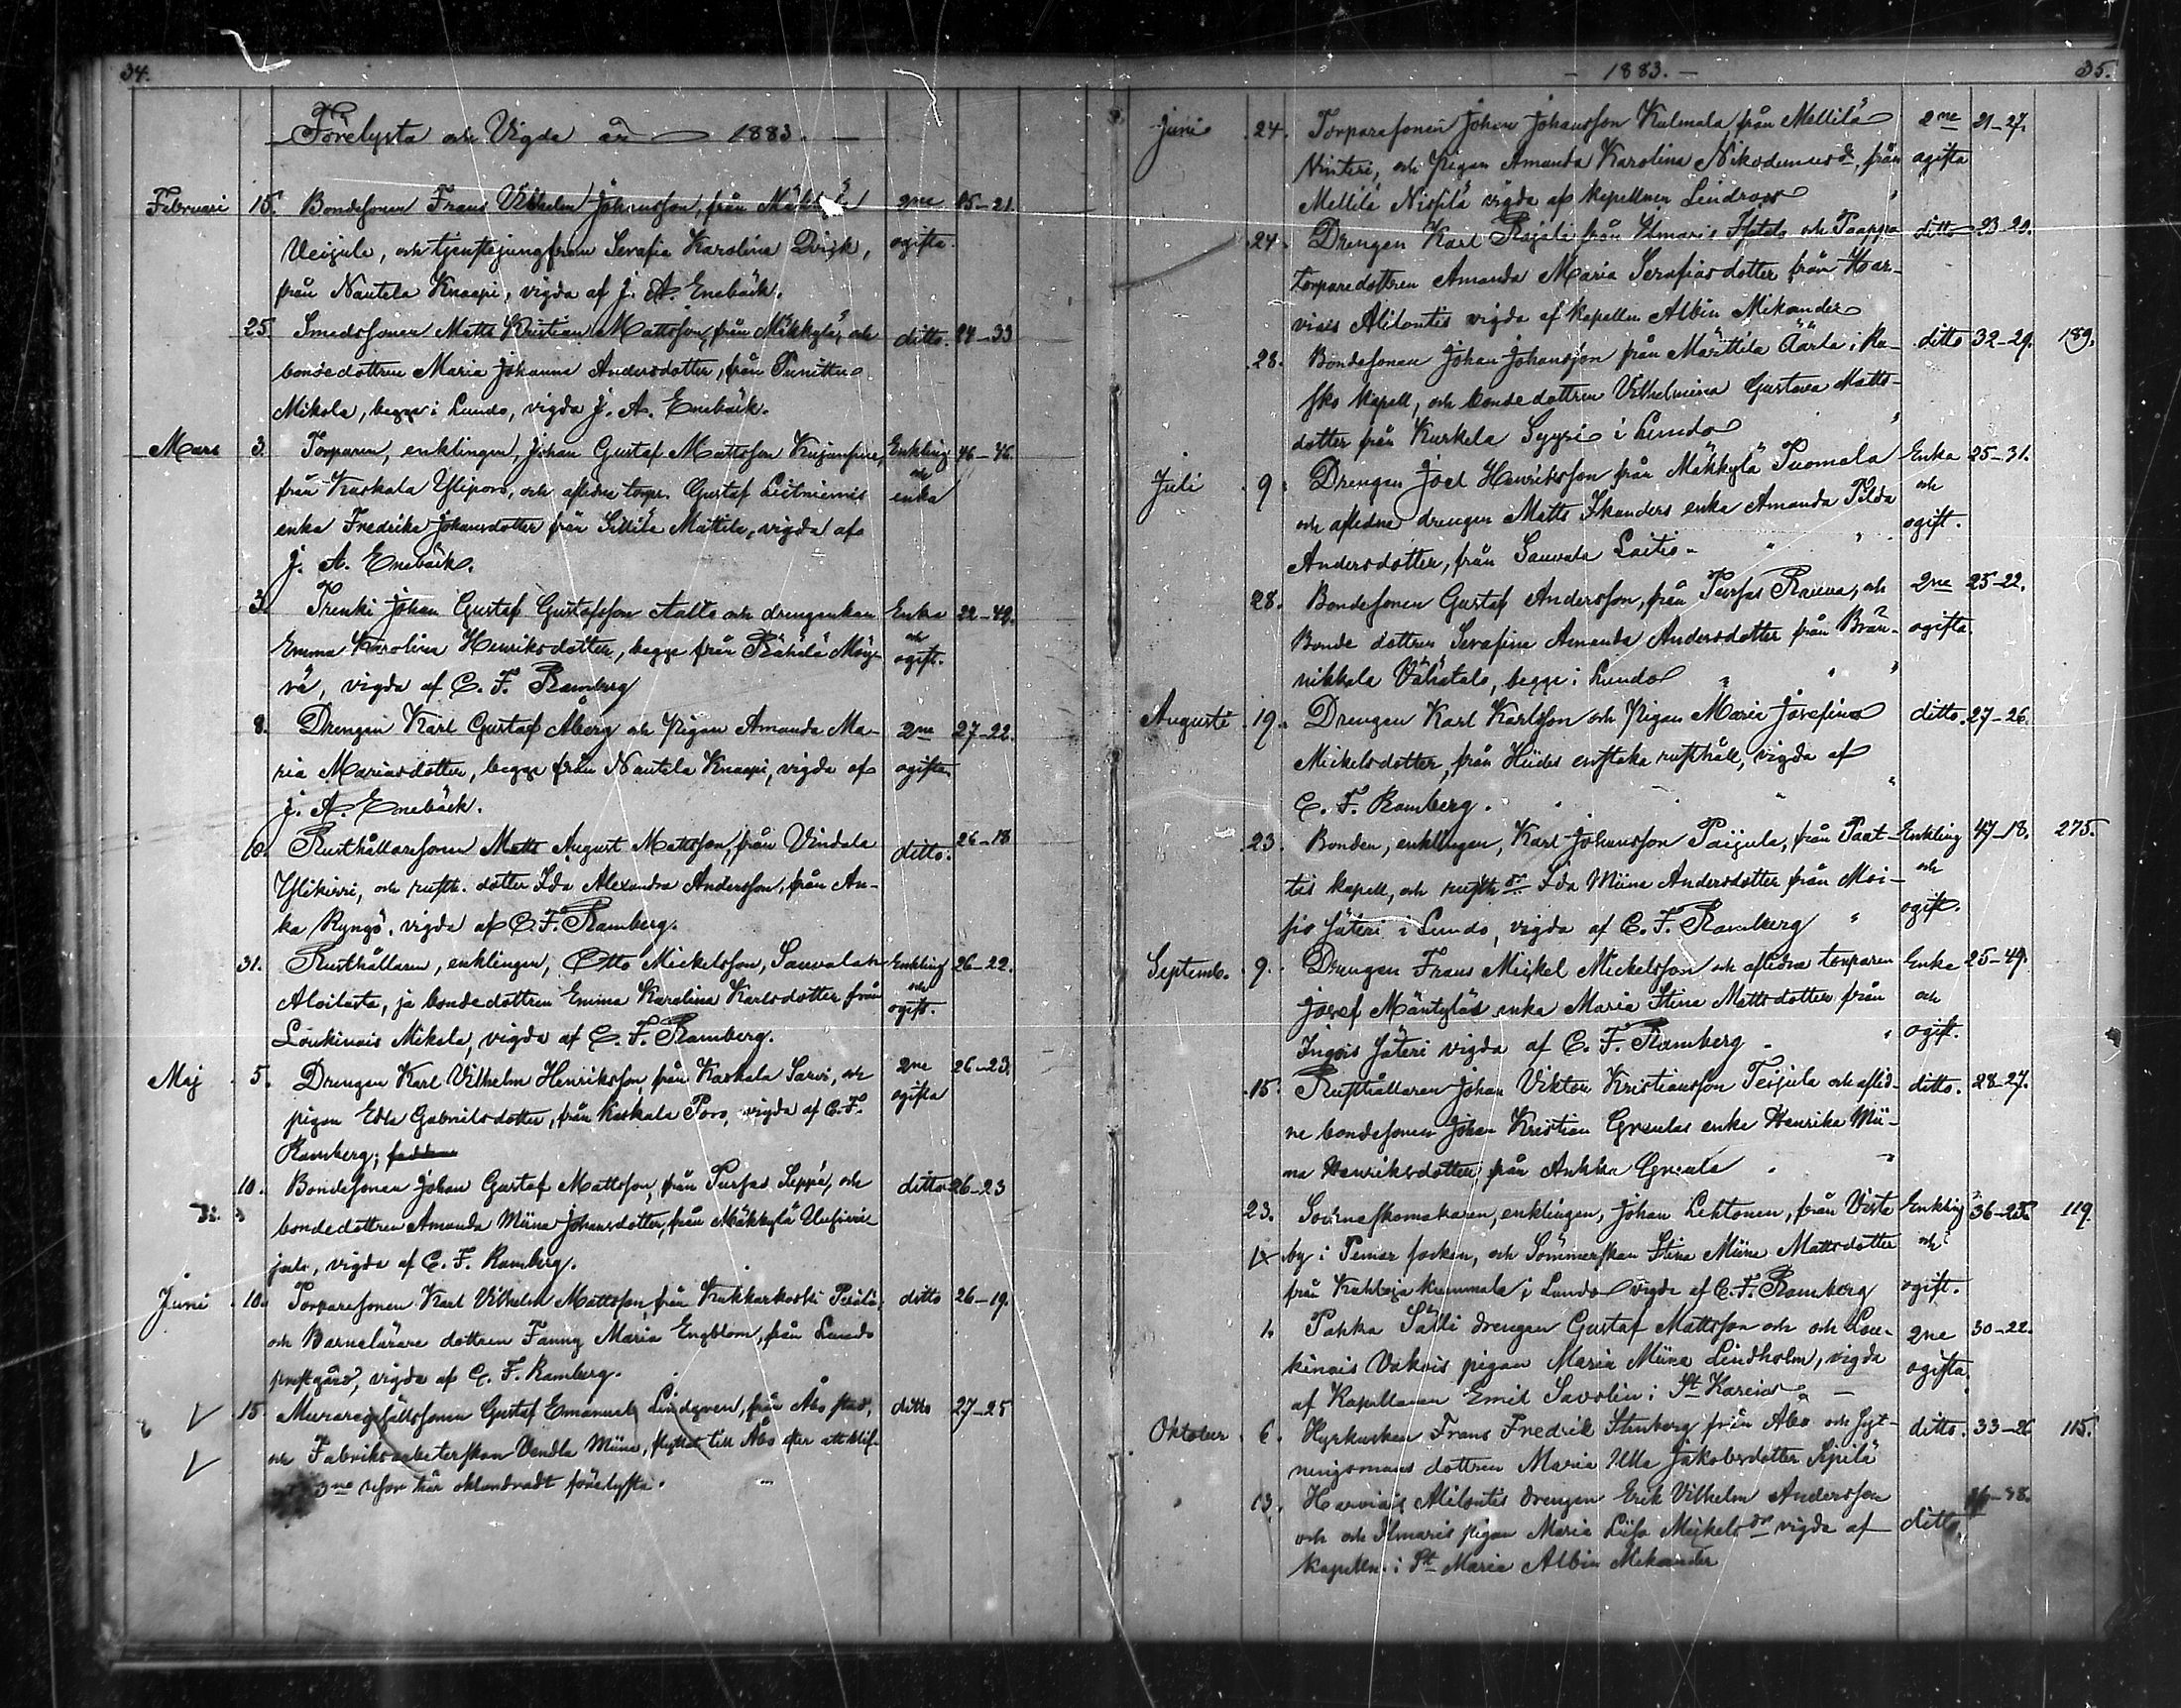 34.
Förelysta och Vigda år 1883.
Februari 15. Bondesonen Frans Vilhelm Johansson, från 2ne 25-21.
Veijula, och tjenstejungfrun Serafia Karolina Qvick, ogifta.
från Nautela Knaapi, vigda af J. A. Enebäck.
25. Smedssonen Matts Kristian Mattsson, från Mäkkylä, och ditto. 24-33
bondedottren Maria Johanna Andersdotter, från Punittu
Mikola, begge i Lundo, vigda J. A. Enebäck.
Mars 3. Torparen, enklingen, Johan Gustaf Mattsson Kujanpää, Enkling 46-46.
från Kaskala Ylipovo, och aflidne torpr. Gustaf och
enka Fredrika Johansdotter från Sillilä Mattila, vigda af enka
J. A. Enebäck.
3. Trenki Johan Gustaf Gustafsson Aalto och drengenkan Enka 22-49.
Emma Karolina Henriksdotter, begge från Rähälä Möy- och ogift.
rä, vigda af C. F. Ramberg
8. Drengen Karl Gustaf Åberg och Pigan Amanda Ma- 2ne 27-22.
ria Mariasdotter, begge från Nautela Knaapi, vigda af ogifta
J. A. Enebäck.
10. Rusthållarsonen Matts August Mattsson, från Vindala ditto. 26-18
Ylikirri, och rusth. dotter Ida Alexandra Andersson, från An-
ka Ryngö, vigda af C. F. Ramberg.
31. Rusthållaren, enklingen, Otto Mickelsson, Sauvalan Enkling 26-22.
Aloilasta, ja bondedottren Emma Karolina Karlsdotter från och ogift.
Loukinais Mikola, vigda af C. F. Ramberg.
Maj 5. Drengen Karl Vilhelm Henriksson från Kaskala Sarvi, och 2ne 26-23.
pigan Edla Gabrielsdotter, från Kaskala Povo, vigda af C. F. ogifta
Ramberg;
10. Bondesonen Johan Gustaf Mattsson, från Purfas Seppä, och ditto 26-23
bondedottren Amanda Miina Johansdotter, från Mäkkylä
jala, vigda af C. F. Ramberg.
Juni 10. Torparesonen Karl Vilhelm Mattsson, från Kukkarkoski Perälä ditto 26-19.
och Barnalärare dottren Fanny Maria Engblom, från Lundo
prestgård, vigda af C. F. Ramberg.
15. Muraregesällssonen Gustaf Emanuel Lindgren, från Åbo stad, ditto 27-25
och Fabriksarbeterskan Vendla Miina, flyttat till Åbo efter att blif-
3ne resor här oklandradt förelysta.
- 1883. - 35.
Juni 24. Torparesonen Johan Johansson Kulmala från Mellilä 2ne 21-27.
Vinteri, och Pigan Amanda Karolina Nikodemusdr, från ogifta
Mellilä Nissilä vigda af Kapellan Lindroos
24. Drengen Karl Rajala från Ilmaris Isotalo och Paappa ditto 23-20.
torparedottren Amanda Maria Serafiasdotter från Har-
vais Alilontis vigda af Kapellan Albin Mikander
28. Bondesonen Johan Johansson från Marttila Äärla i Ru- ditto 32-29. 189.
sko Kapell, och bondedottren Vilhelmina Gustava Matts-
dotter från Kurkela Syyri i Lundo
Juli 9. Drengen Joel Henriksson från Mäkkylä Tuomala Enka 25-31.
och aflidne drengen Matts Ikanders enka Amanda Tilda och
Andersdotter, från Sauvala Laitio " " ogift.
28. Bondesonen Gustaf Andersson, från Purfas Rauva, och 2ne 25-22.
Bonde dottren Serafina Amanda Andersdotter från Brän- ogifta
nikkala Vähätalo, begge i Lundo " " "
Augusti 19. Drengen Karl Karlsson och Pigan Maria Josefina ditto. 27-26.
Mickelsdotter, från Hiides enstaka rusthåll, vigda af
C. F. Ramberg.
23. Bonden, enklingen, Karl Johansson Paijula, från Paat- Enkling 47-18. 275.
tis kapell, och rusth dr Ida Miina Andersdotter från Moi- och
sio Jäteri i Lundo, vigda af C. F. Ramberg " ogift.
Septemb. 9. Drengen Frans Mickel Mickelsson och aflidne torparen Enka 25-49.
Josef Mäntyläs enka Maria Stina Mattsdotter från och
Ingois Jäteri vigda af C. F. Ramberg ogift.
15. Rusthållaren Johan Viktor Kristiansson Teijula och aflid- ditto. 28-27.
ne bondesonen Johan Kristian Gneulas enka Henrika Mii-
na Henriksdotter från Ankka Gneula
23. Socknaskomakaren, enklingen, Johan Lehtonen, från Vista Enkling 36-25. 119.
by i Pemar socken, och Sömmerskan Stina Miina Mattsdotter och
från Kukkoja kummala i Lundo vigda af C. F. Ramberg ogift.
1. Pahka Saili drengen Gustaf Mattsson och och Lou- 2ne 30-22.
kinais Vakois pigan Maria Miina Lindholm, vigda ogifta.
af Kapellanen Emil Savolin i St Karins
Oktober 6. Hyrkusken Frans Fredrik Stenberg från Åbo och Gyt- ditto. 33-26 115.
ningsmans dottren Maria Ulla Jakobsdotter Sipilä
13. Harvais Alilontis drengen Erik Vilhelm Andersson 26-38.
och och Ilmaris pigan Maria Liisa Mickelsdr vigda af ditto.
Kapelln. i St Maria Albin Mikander